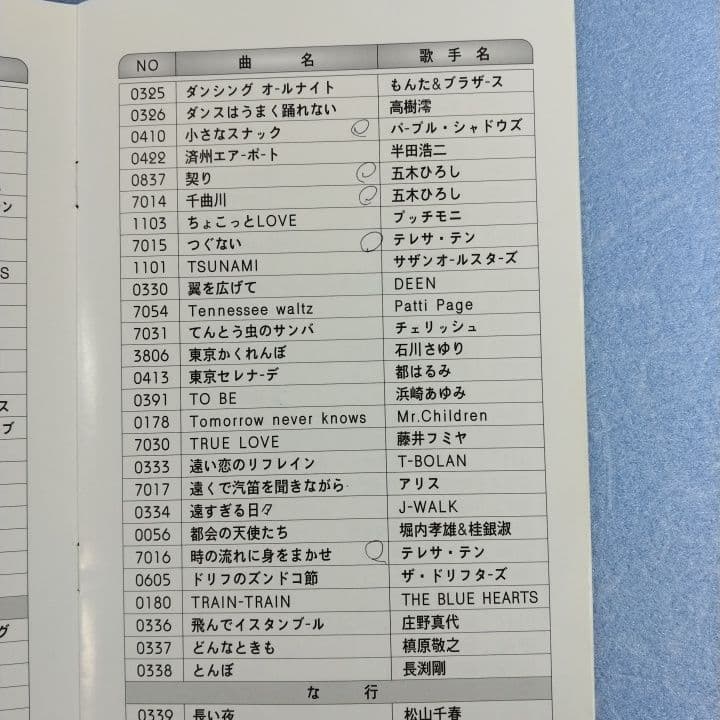 NO 曲名 歌手名
0325 ダンシング オールナイト もんた&ブラザース
0326 ダンスはうまく踊れない 高樹澪
0410 小さなスナック パープル・シャドウズ
0422 済州エアーポート 半田浩二
0837 契り 五木ひろし
7014 千曲川 五木ひろし
1103 ちょこっとLOVE プッチモニ
7015 つぐない テレサ・テン
1101 TSUNAMI サザンオールスターズ
0330 翼を広げて DEEN
7054 Tennessee waltz Patti Page
7031 てんとう虫のサンバ チェリッシュ
3806 東京かくれんぼ 石川さゆり
0413 東京セレナーデ 都はるみ
0391 TO BE 浜崎あゆみ
0178 Tomorrow never knows Mr.Children
7030 TRUE LOVE 藤井フミヤ
0333 遠い恋のリフレイン T-BOLAN
7017 遠くで汽笛を聞きながら アリス
0334 遠すぎる日々 J-WALK
0056 都会の天使たち 堀内孝雄&桂銀淑
7016 時の流れに身をまかせ テレサ・テン
0605 ドリフのズンドコ節 ザ・ドリフターズ
0180 TRAIN-TRAIN THE BLUE HEARTS
0336 飛んでイスタンブール 庄野真代
0337 どんなときも 槙原敬之
0338 とんぼ 長渕剛
な行
0339 長い夜 松山千春